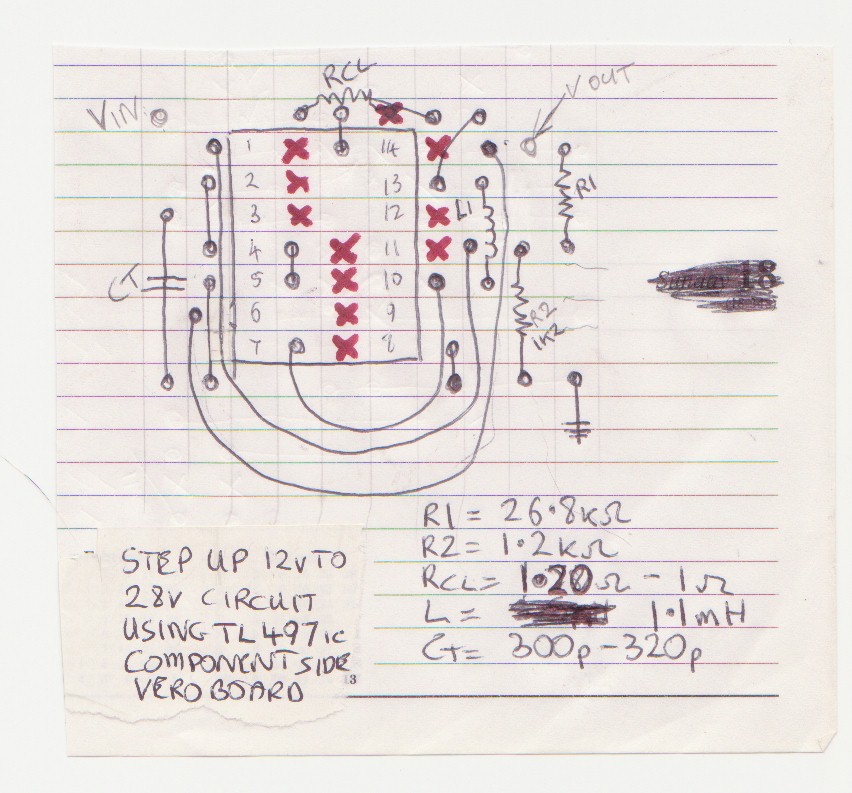 RCL
VIN
VOUT
1 14
2 13
3 12
4 11
5 10
6 9
7 8
L1
R1
CT
R2
1K2
18
R1 = 26.8KΩ
R2 = 1.2KΩ
RCL = 1.20Ω - 1Ω
L = 1.1mH
CT = 300p - 320p
STEP UP 12V TO
28V CIRCUIT
USING TL497 IC
COMPONENT SIDE
VERO BOARD
3